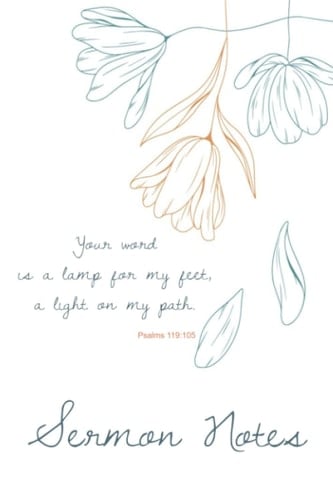 Your word
is a lamp for my feet,
a light on my path.
Psalms 119:105
Sermon Notes